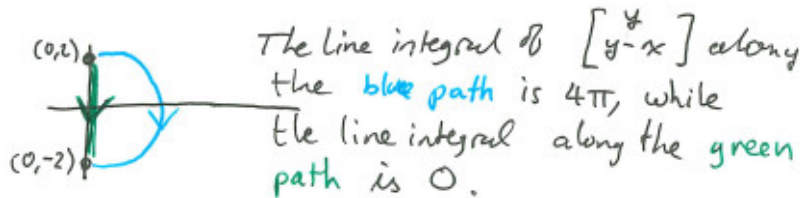 (0,2)
(0,-2)
The line integral of [y y-x] along
the blue path is 4π, while
the line integral along the green
path is 0.